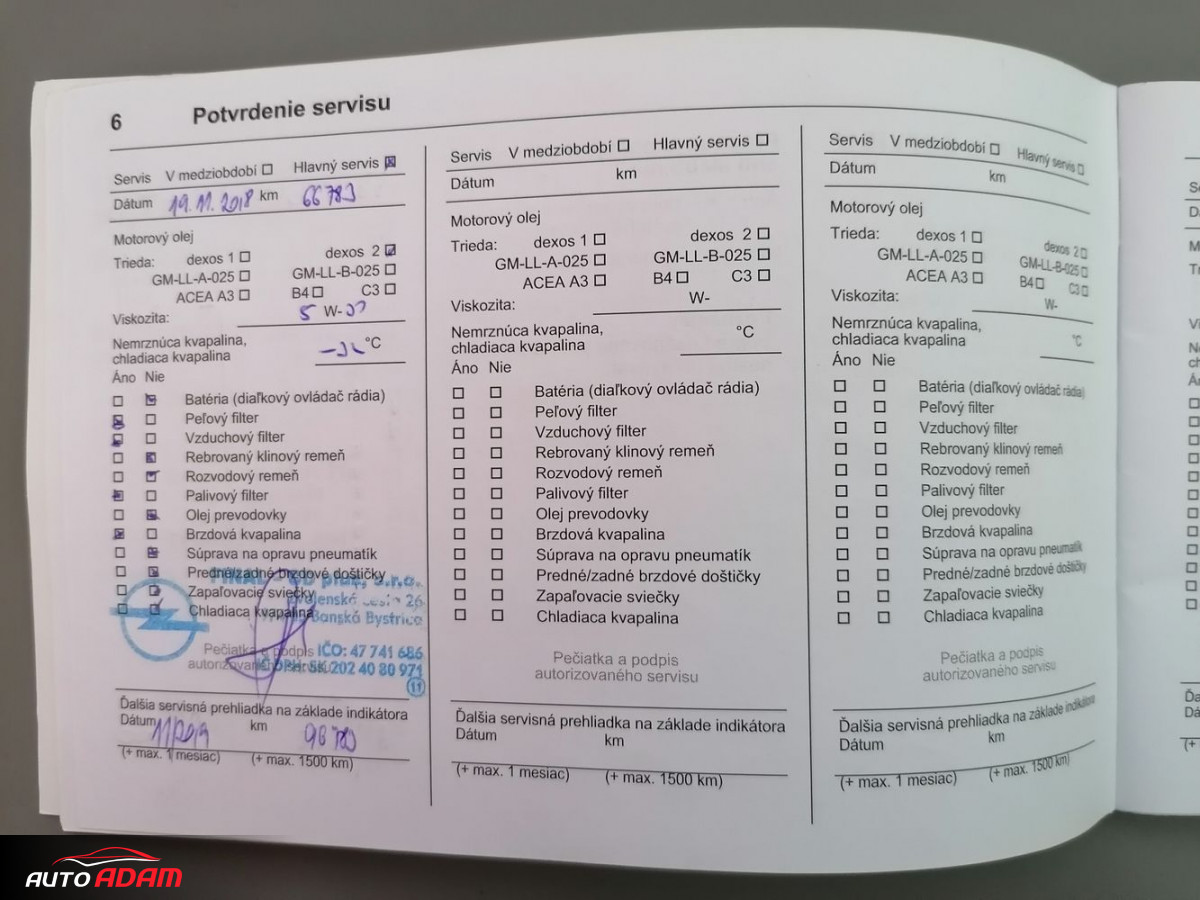 6 Potvrdenie servisu
Servis V medziobdobí Hlavný servis
Dátum 19.11.2018 km 66783
Motorový olej
Trieda: dexos 1 dexos 2
GM-LL-A-025 GM-LL-B-025
ACEA A3 B4 C3
Viskozita: 5 W-
Nemrznúca kvapalina,
chladiaca kvapalina °C
Áno Nie
Batéria (diaľkový ovládač rádia)
Peľový filter
Vzduchový filter
Rebrovaný klinový remeň
Rozvodový remeň
Palivový filter
Olej prevodovky
Brzdová kvapalina
Súprava na opravu pneumatík
Predné/zadné brzdové doštičky
Zapaľovacie sviečky
Chladiaca kvapalina
26
Banská Bystrica
Pečiatka a podpis
autorizovaného servisu
IČO: 47 741 686
DPH: SK 202 40 80 971
11
Ďalšia servisná prehliadka na základe indikátora
Dátum km 96783
(+ max. 1 mesiac) (+ max. 1500 km)
Servis V medziobdobí Hlavný servis
Dátum km
Motorový olej
Trieda: dexos 1 dexos 2
GM-LL-A-025 GM-LL-B-025
ACEA A3 B4 C3
Viskozita: W-
Nemrznúca kvapalina,
chladiaca kvapalina °C
Áno Nie
Batéria (diaľkový ovládač rádia)
Peľový filter
Vzduchový filter
Rebrovaný klinový remeň
Rozvodový remeň
Palivový filter
Olej prevodovky
Brzdová kvapalina
Súprava na opravu pneumatík
Predné/zadné brzdové doštičky
Zapaľovacie sviečky
Chladiaca kvapalina
Pečiatka a podpis
autorizovaného servisu
Ďalšia servisná prehliadka na základe indikátora
Dátum km
(+ max. 1 mesiac) (+ max. 1500 km)
Servis V medziobdobí Hlavný servis
Dátum km
Motorový olej
Trieda: dexos 1 dexos 2
GM-LL-A-025 GM-LL-B-025
ACEA A3 B4 C3
Viskozita: W-
Nemrznúca kvapalina,
chladiaca kvapalina °C
Áno Nie
Batéria (diaľkový ovládač rádia)
Peľový filter
Vzduchový filter
Rebrovaný klinový remeň
Rozvodový remeň
Palivový filter
Olej prevodovky
Brzdová kvapalina
Súprava na opravu pneumatík
Predné/zadné brzdové doštičky
Zapaľovacie sviečky
Chladiaca kvapalina
Pečiatka a podpis
autorizovaného servisu
Ďalšia servisná prehliadka na základe indikátora
Dátum km
(+ max. 1 mesiac) (+ max. 1500 km)
AUTO ADAM